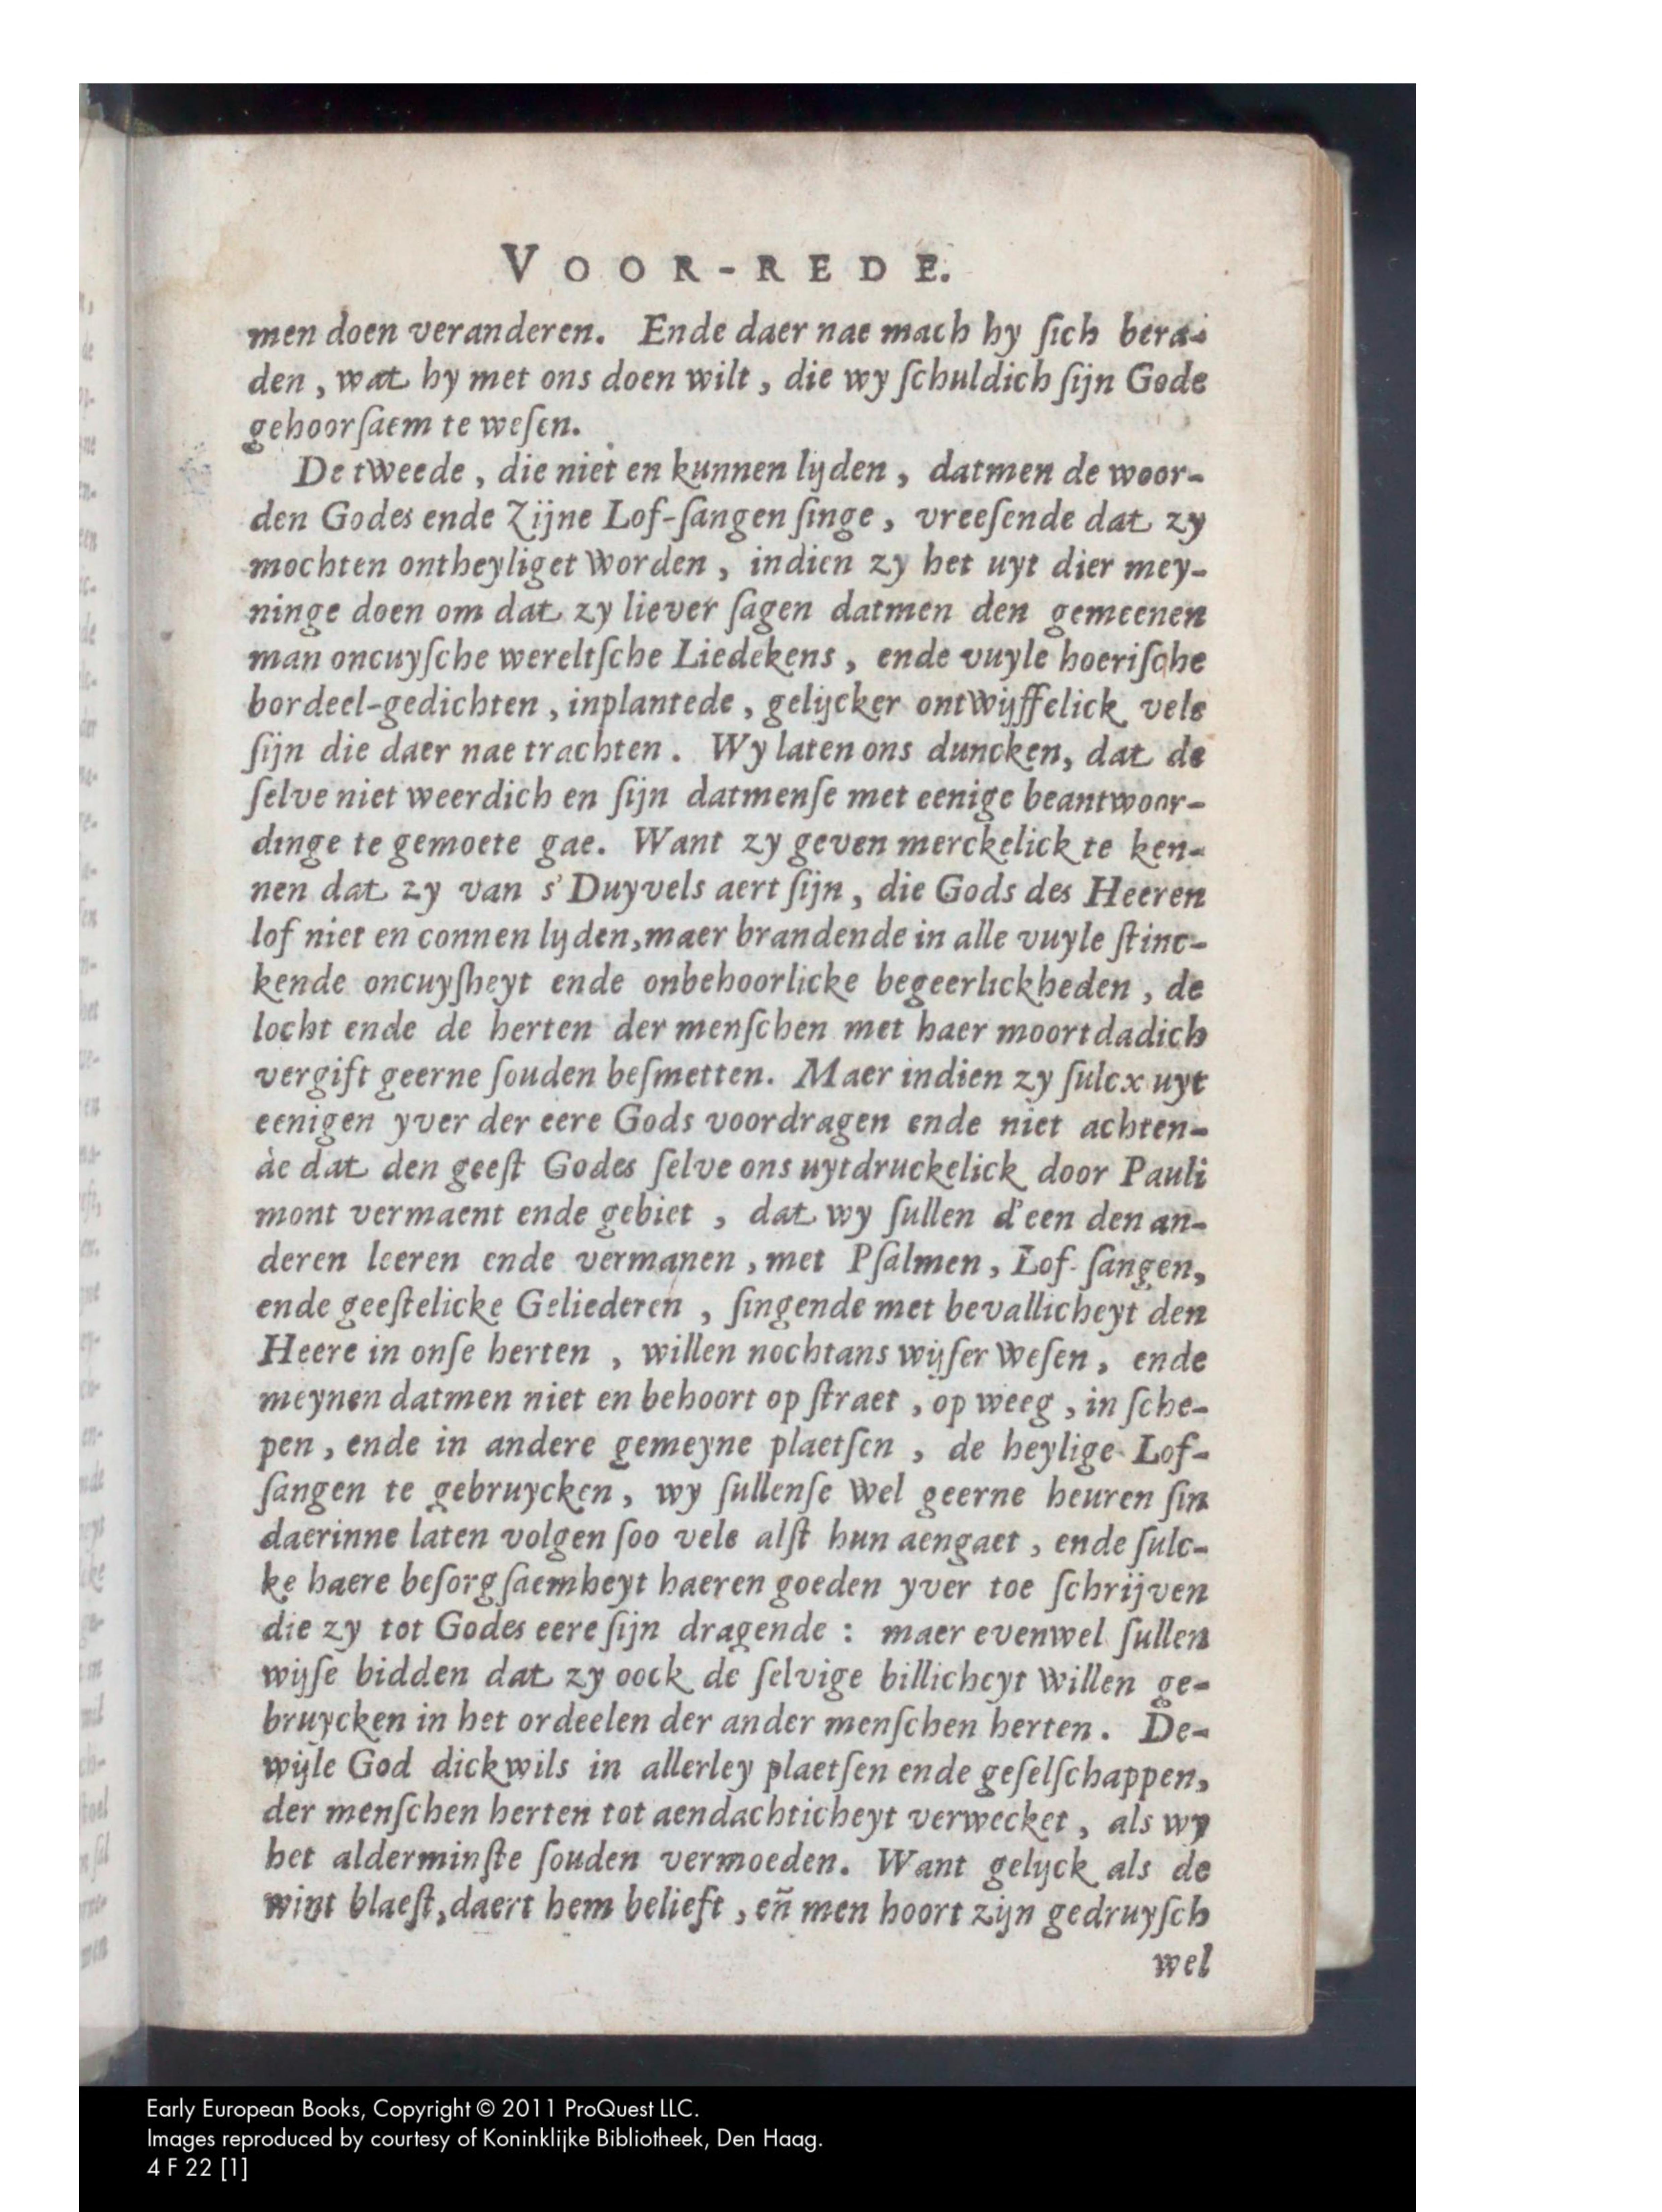 VOOR-REDE.
men doen veranderen. Ende daer nae mach hy ſich bera-
den, wat hy met ons doen wilt, die wy ſchuldich ſijn Gode
gehoorſaem te weſen.
De tweede, die niet en kunnen lijden, datmen de woor-
den Godes ende Zijne Lof-ſangen ſinge, vreeſende dat zy
mochten ontheyliget worden, indien zy het uyt dier mey-
ninge doen om dat zy liever ſagen datmen den gemeenen
man oncuyſche wereltſche Liedekens, ende vuyle hoeriſche
bordeel-gedichten, inplantede, gelijcker ontwijffelick vele
ſijn die daer nae trachten. Wy laten ons duncken, dat de
ſelve niet weerdich en ſijn datmenſe met eenige beantwoor-
dinge te gemoete gae. Want zy geven merckelick te ken-
nen dat zy van s'Duyvels aert ſijn, die Gods des Heeren
lof niet en connen lijden, maer brandende in alle vuyle ſtinc-
kende oncuyſheyt ende onbehoorlicke begeerlickheden, de
locht ende de herten der menſchen met haer moortdadich
vergift geerne ſouden beſmetten. Maer indien zy ſulcx uyt
eenigen yver der eere Gods voordragen ende niet achten-
de dat den geeſt Godes ſelve ons uytdruckelick door Pauli
mont vermaent ende gebiet, dat wy ſullen d'een den an-
deren leeren ende vermanen, met Pſalmen, Lof-ſangen,
ende geeſtelicke Geliederen, ſingende met bevallicheyt den
Heere in onſe herten, willen nochtans wijſer weſen, ende
meynen datmen niet en behoort op ſtraet, op weeg, in ſche-
pen, ende in andere gemeyne plaetſen, de heylige Lof-
ſangen te gebruycken, wy ſullenſe wel geerne heuren ſin
daerinne laten volgen ſoo vele alſt hun aengaet, ende ſulc-
ke haere beſorgſaemheyt haeren goeden yver toe ſchrijven
die zy tot Godes eere ſijn dragende: maer evenwel ſullen
wijſe bidden dat zy oock de ſelvige billicheyt willen ge-
bruycken in het ordeelen der ander menſchen herten. De-
wijle God dickwils in allerley plaetſen ende geſelſchappen,
der menſchen herten tot aendachticheyt verwecket, als wy
het alderminſte ſouden vermoeden. Want gelijck als de
wint blaeſt, daert hem belieft, eñ men hoort zijn gedruyſch
wel
Early European Books, Copyright © 2011 ProQuest LLC.
Images reproduced by courtesy of Koninklijke Bibliotheek, Den Haag.
4 F 22 [1]